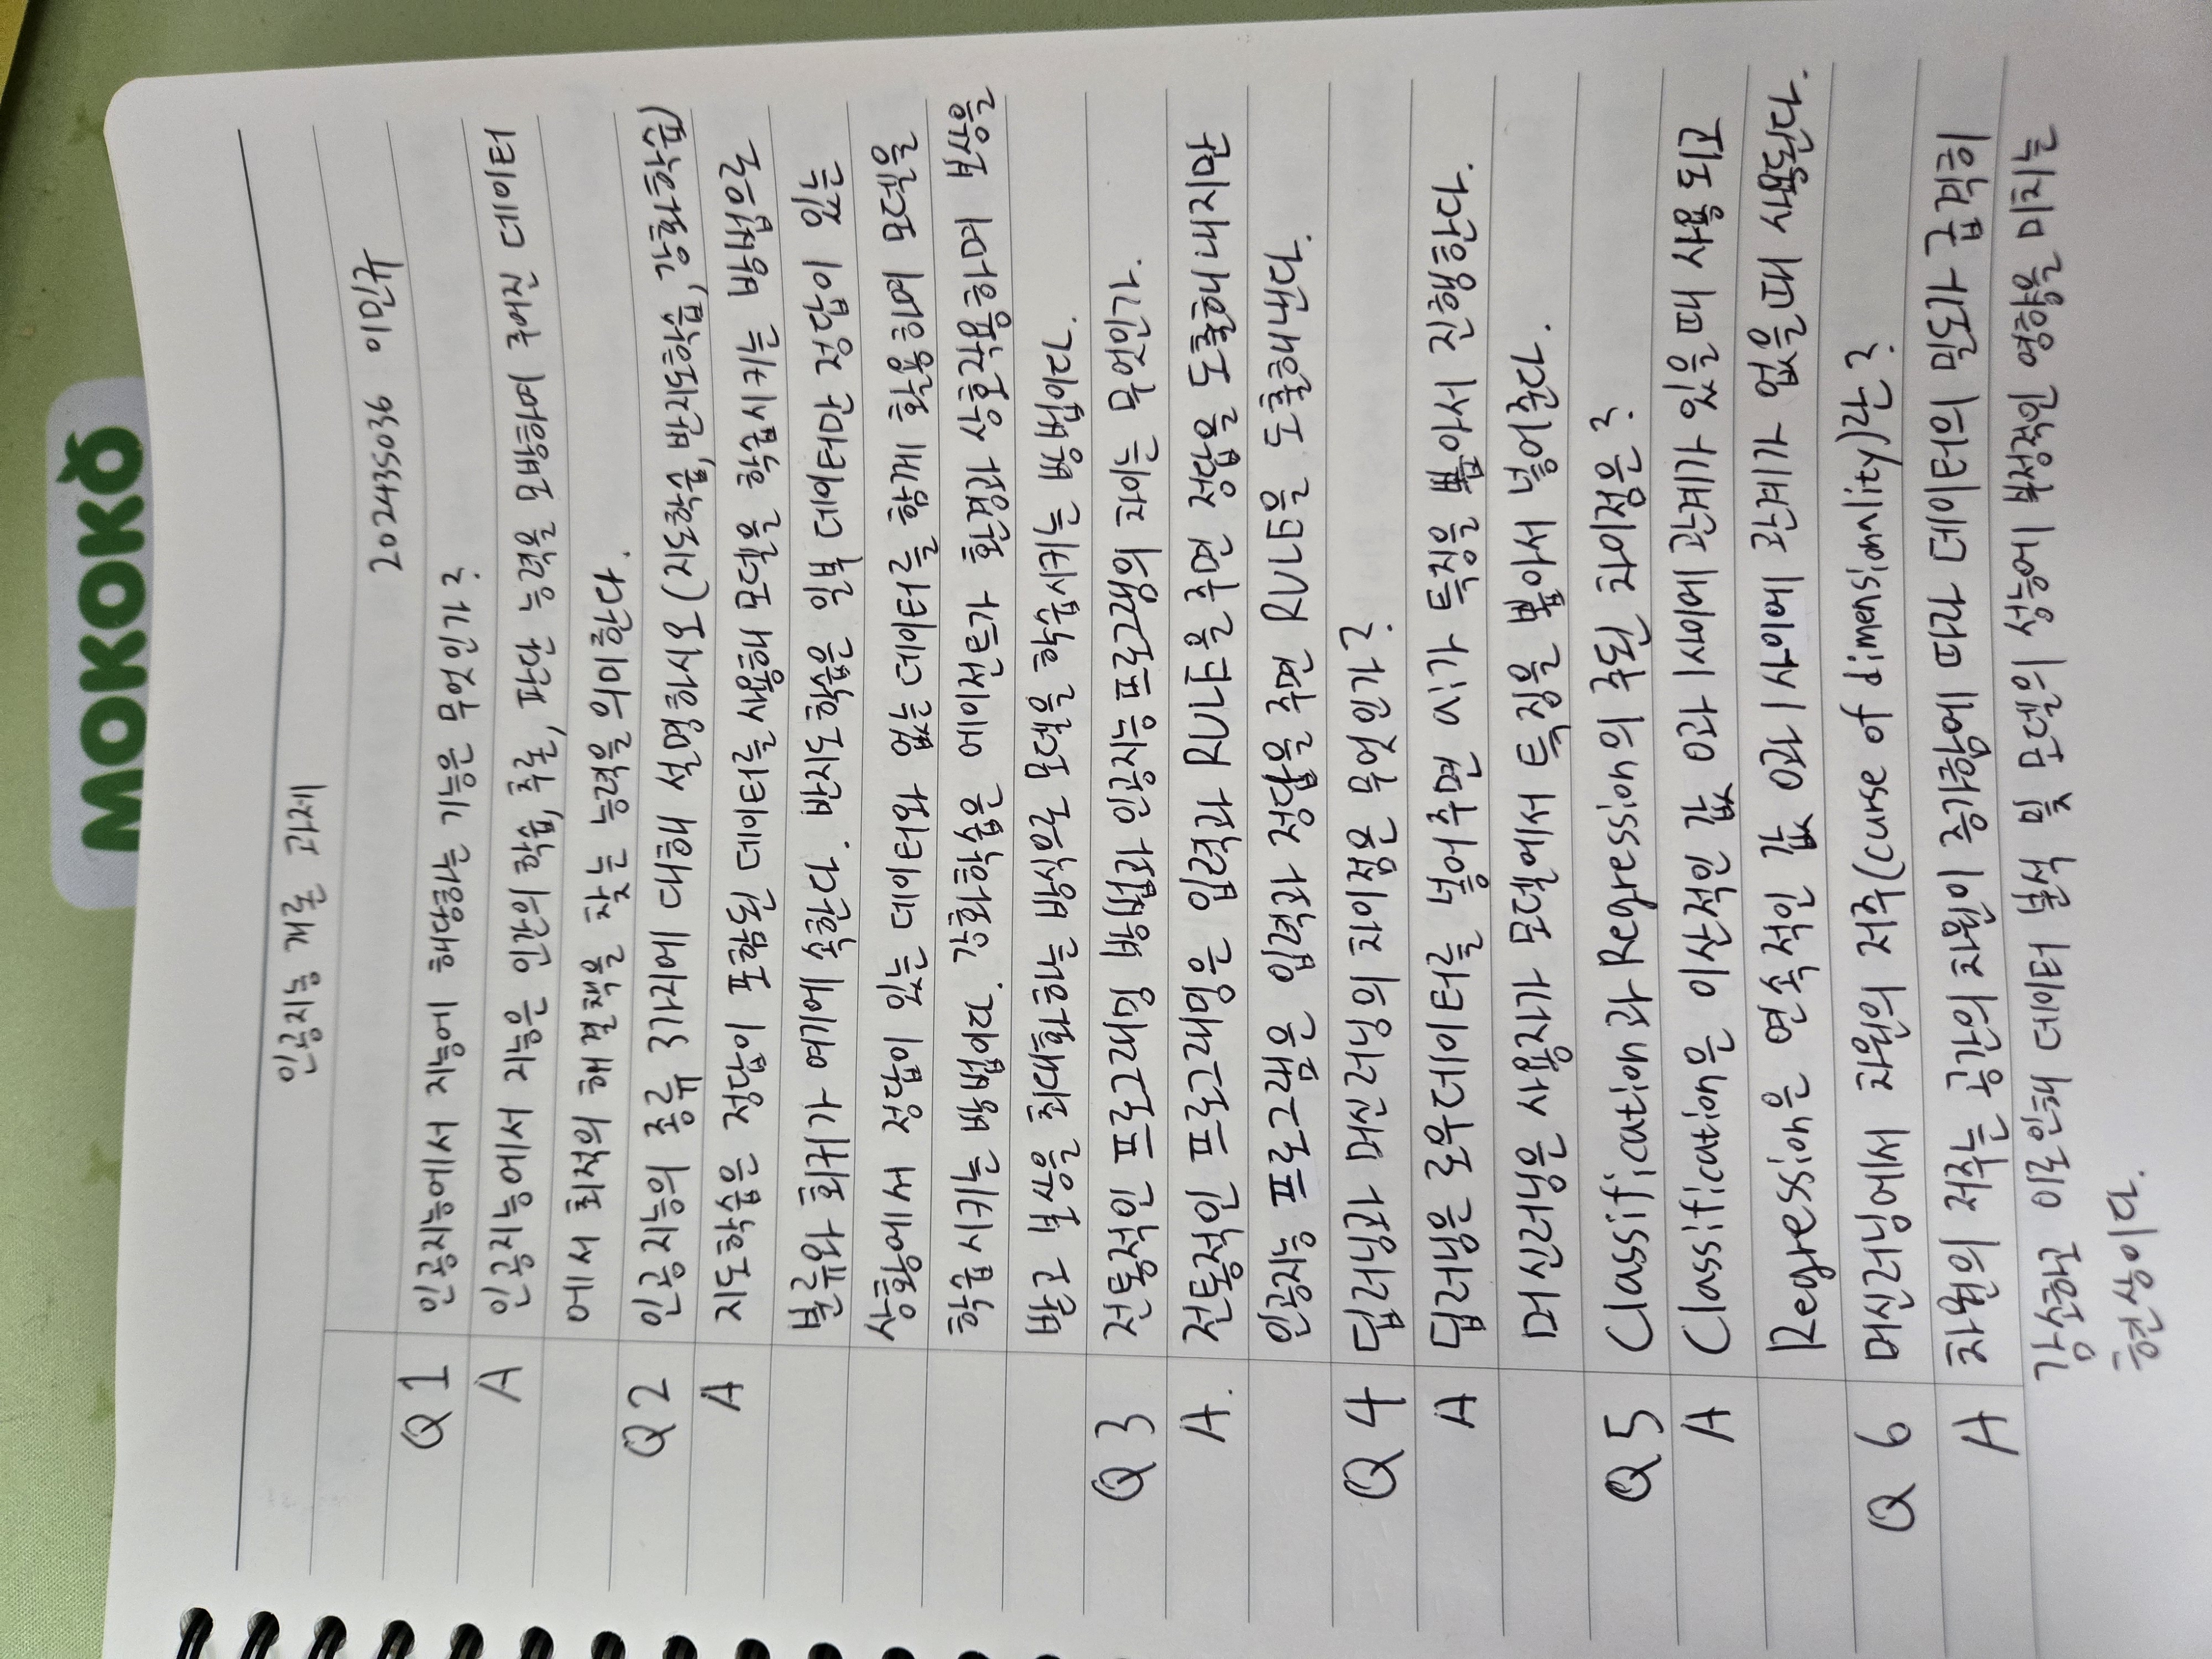 MOKOKO
인공지능 개론 과제
202435036 이민규
Q1 인공지능에서 지능에 해당하는 기능은 무엇인가?
A 인공지능에서 지능은 인간의 학습, 추론, 판단 능력을 모방하며 주어진 데이터
에서 최적의 해결책을 찾는 능력을 의미한다.
Q2 인공지능의 종류 3가지에 대해 설명하시오 (지도학습, 반지도학습, 강화학습)
A 지도학습은 정답이 포함된 데이터를 사용해 모델을 학습시키는 방법으로
분류와 회귀가 여기에 속한다. 반지도학습은 일부 데이터만 정답이 있는
상황에서 정답이 있는 데이터와 없는 데이터를 함께 활용하며 모델을
학습시키는 방법이다. 강화학습은 에이전트가 환경과 상호작용하며 보상을
받고 보상을 최대화하는 방식으로 모델을 학습시키는 방법이다.
Q3 전통적인 프로그래밍 방법과 인공지능 프로그램의 차이는 무엇인가.
A. 전통적인 프로그래밍은 입력과 RULE을 주면 정답을 도출해 내지만
인공지능 프로그램은 입력과 정답을 주면 RULE을 도출해낸다.
Q4 딥러닝과 머신러닝의 차이점은 무엇인가?
A 딥러닝은 로우데이터를 넣어주면 ai가 특징을 뽑아서 진행한다.
머신러닝은 사용자가 모델에서 특징을 뽑아서 넣어준다.
Q5 Classification과 Regression의 주된 차이점은?
A Classification은 이산적인 값 0과 1사이에 관계가 있을때 사용되고
Regression은 연속적인 값 0과 1사이에 관계가 없을때 사용된다.
Q6 머신러닝에서 차원의 저주(curse of dimensionality)란?
A 차원의 저주는 공간의 차원이 증가함에 따라 데이터의 밀도가 급격히
감소하고 이로인해 데이터 분석 및 모델의 성능에 부정적인 영향을 미치는
현상이다.